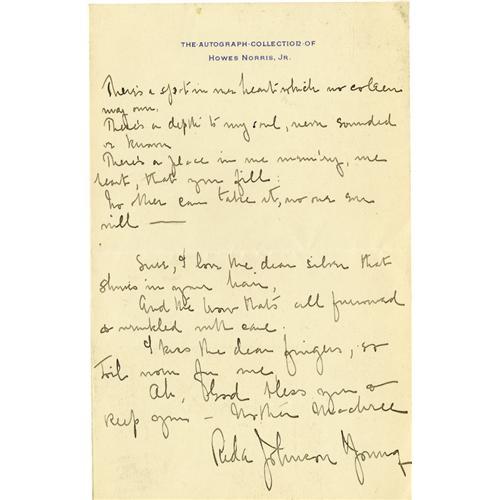 THE·AUTOGRAPH·COLLECTION·OF
HOWES NORRIS, JR.
There's a spot in me heart which no colleen
may own.
There's a depth to my soul, never sounded
or known
There's a place in me mem'ry, me
heart, that you fill:
No other can take it, no one ever
will —
Sure, I love the dear silver that
shines in your hair,
And the brow that's all furrowed
& wrinkled with care.
I kiss the dear fingers, so
toil worn for me,
Ah, God bless you &
keep you – Mother Machree
Rida Johnson Young